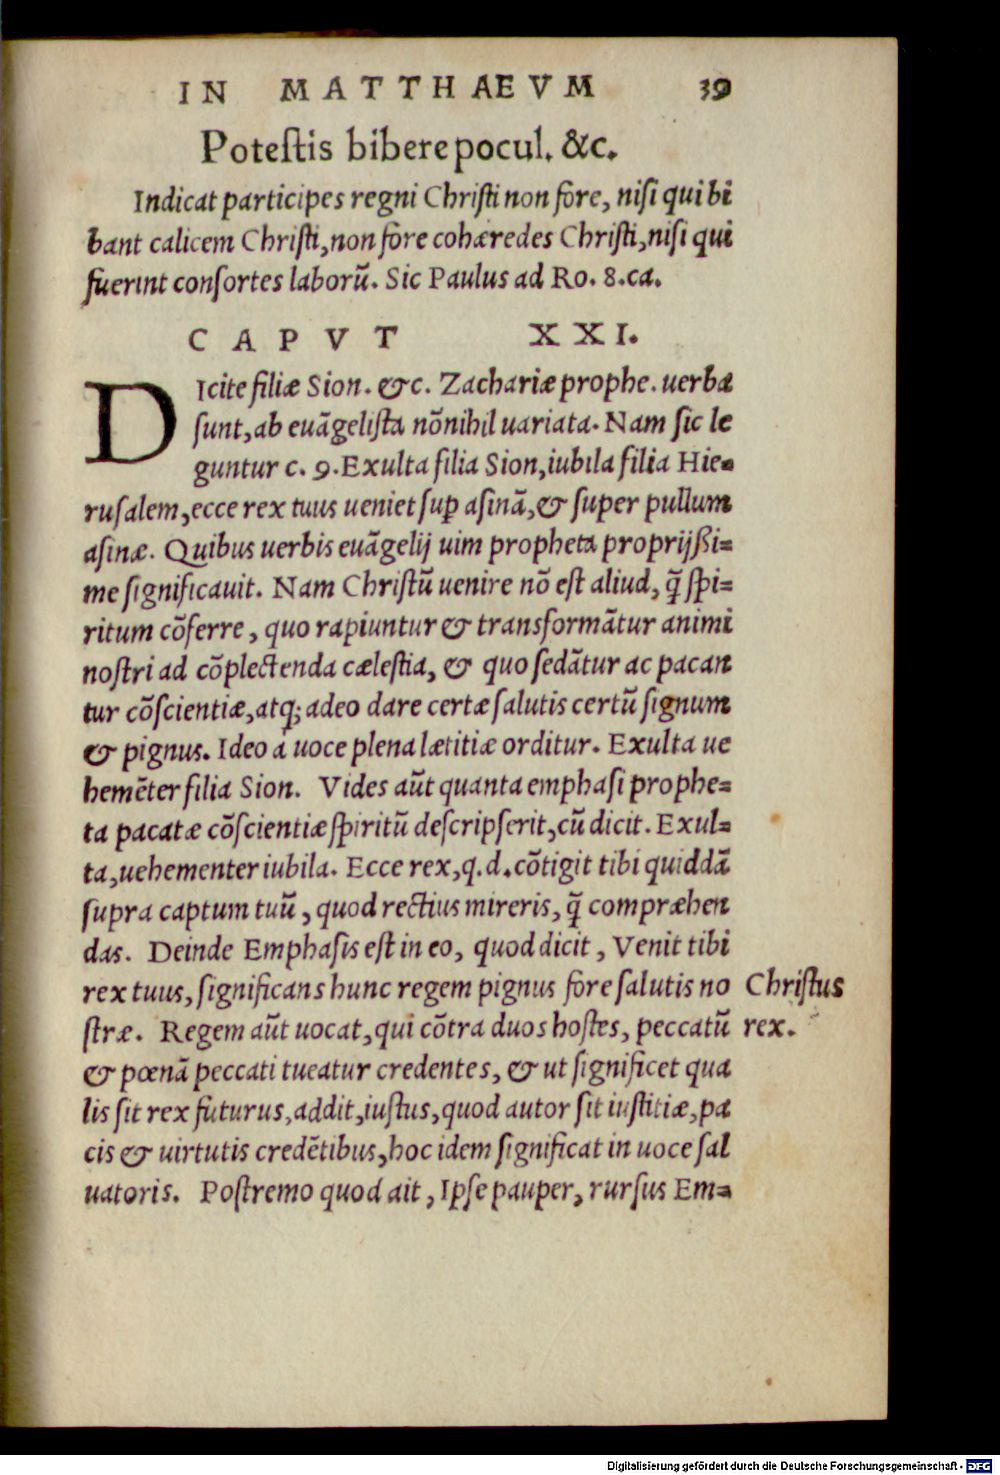 IN MATTHAEVM 39
Poteſtis bibere pocul. &c.
Indicat participes regni Chriſti non fore, niſi qui bi
bant calicem Chriſti, non fore cohæredes Chriſti, niſi qui
fuerint conſortes laborũ. Sic Paulus ad Ro. 8. ca.
CAPVT XXI.
DIcite filiæ Sion. &c. Zachariæ prophe. uerba
ſunt, ab euãgeliſta nõnihil uariata. Nam ſic le
guntur c. 9. Exulta filia Sion, iubila filia Hie=
ruſalem, ecce rex tuus ueniet suꝑ aſinã, & ſuper pullum
aſinæ. Quibus uerbis euãgelij uim propheta proprijßi=
me ſignificauit. Nam Chriſtũ uenire nõ eſt aliud, q̃ ſpi=
ritum cõferre, quo rapiuntur & transformãtur animi
noſtri ad cõplectenda cæleſtia, & quo ſedãtur ac pacan
tur cõſcientiæ, atq; adeo dare certæ ſalutis certũ ſignum
& pignus. Ideo a uoce plena lætitiæ orditur. Exulta ue
hemẽter filia Sion. Vides aũt quanta emphaſi prophe=
ta pacatæ cõſcientiæ ſpiritũ deſcripſerit, cũ dicit. Exul=
ta, uehementer iubila. Ecce rex, q. d. cõtigit tibi quiddã
ſupra captum tuũ, quod rectius mireris, q̃ compræhen
das. Deinde Emphaſis eſt in eo, quod dicit, Venit tibi
rex tuus, ſignificans hunc regem pignus fore ſalutis no
ſtræ. Regem aũt uocat, qui cõtra duos hoſtes, peccatũ
& pœnã peccati tueatur credentes, & ut ſignificet qua
lis ſit rex futurus, addit, iuſtus, quod autor ſit iuſtitiæ, pa
cis & uirtutis credẽtibus, hoc idem ſignificat in uoce ſal
uatoris. Poſtremo quod ait, Ipſe pauper, rurſus Em=
Chriſtus
rex.
Digitalisierung gefördert durch die Deutsche Forschungsgemeinschaft - DFG